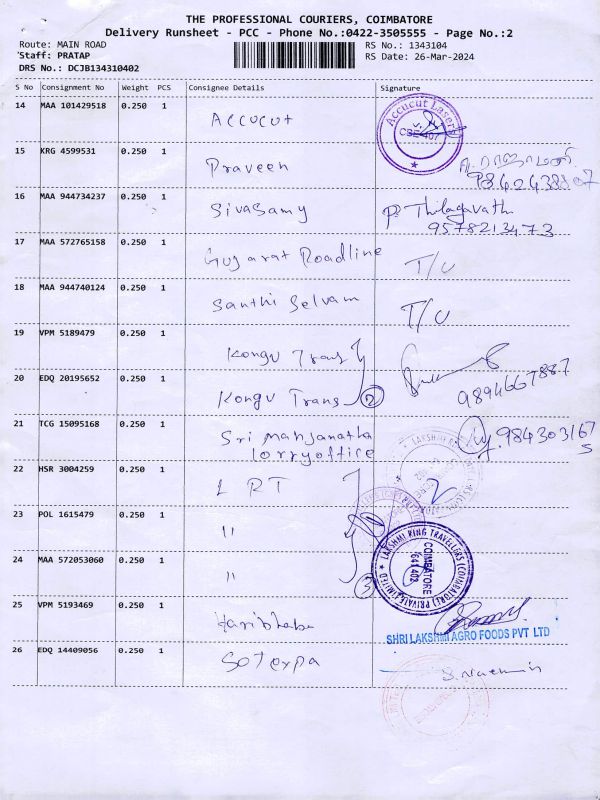 THE PROFESSIONAL COURIERS, COIMBATORE
Delivery Runsheet - PCC - Phone No.:0422-3505555 - Page No.:2
Route: MAIN ROAD
RS No.: 1343104
Staff: PRATAP
RS Date: 26-Mar-2024
DRS No.: DCJB134310402
S No Consignment No Weight PCS Consignee Details Signature
14 MAA 101429518 0.250 1 Accucut
Accucut Lasers
CBE-407
15 KRG 4599531 0.250 1 Praveen
16 MAA 944734237 0.250 1 Sivasamy P. Thilagavath
9578213473
17 MAA 572765158 0.250 1 Gujarat Roadline T/C
18 MAA 944740124 0.250 1 Santhi Selvam T/C
19 VPM 5189479 0.250 1 Kongu Trans
20 EDQ 20195652 0.250 1 Kongu Trans 2 9894667887
21 TCG 15095168 0.250 1 Sri Manjanatha
lorryoffice
22 HSR 3004259 0.250 1 L R T
23 POL 1615479 0.250 1 "
24 MAA 572053060 0.250 1 " 3
LAKSHMI RING TRAVELLERS (COIMBATORE) PRIVATE LIMITED
COIMBATORE
641 402
25 VPM 5193469 0.250 1
SHRI LAKSHMI AGRO FOODS PVT LTD
26 EDQ 14409056 0.250 1 Soterpa